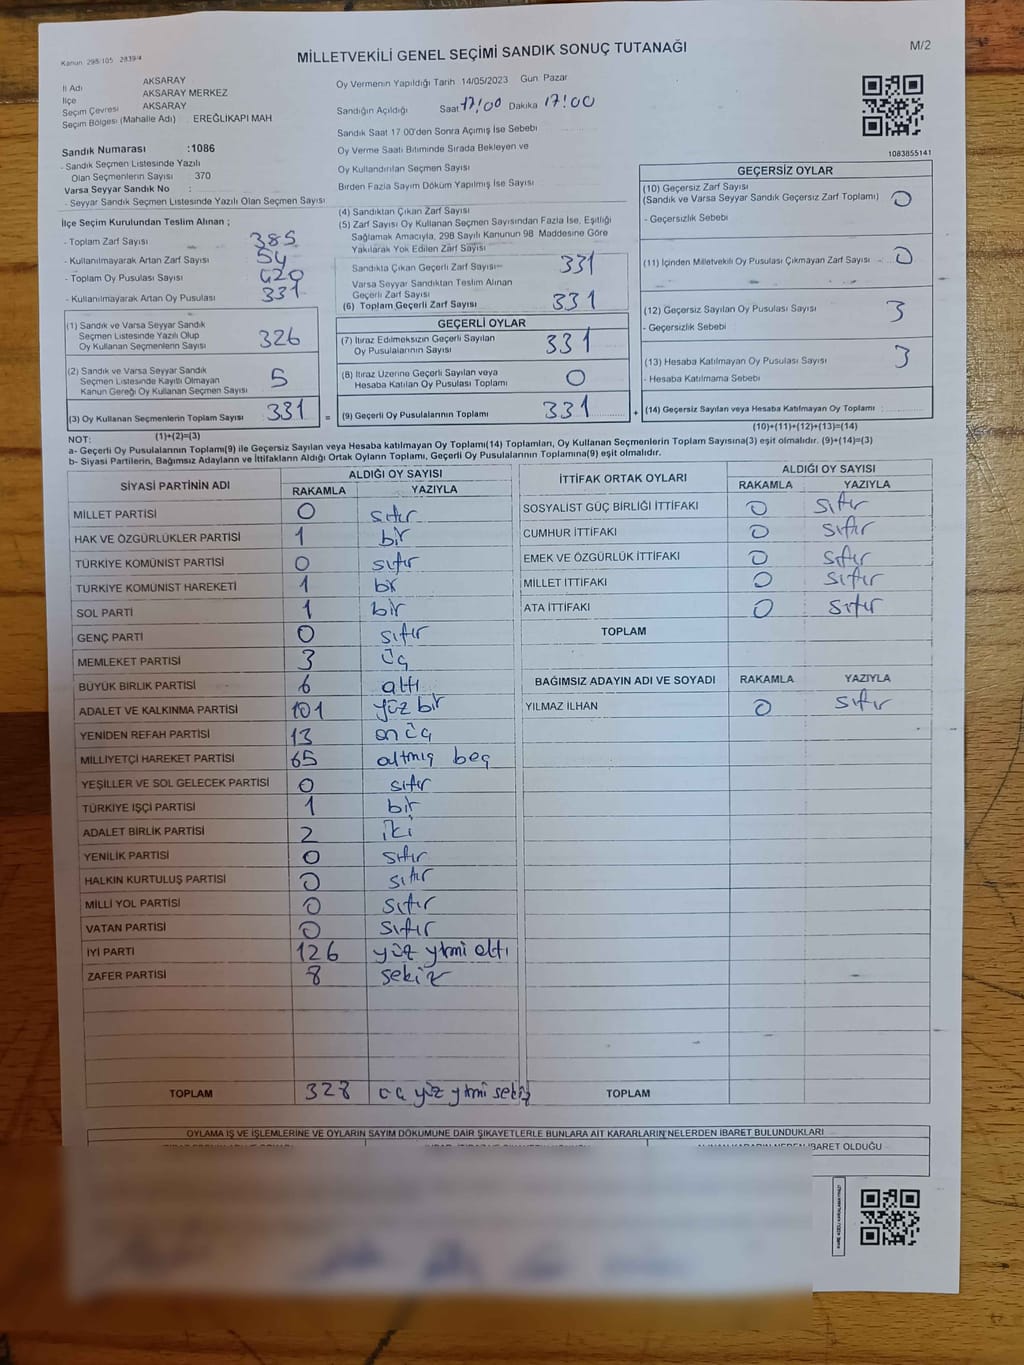 Kanun 298/105 2839/4
MİLLETVEKİLİ GENEL SEÇİMİ SANDIK SONUÇ TUTANAĞI
M/2
İl Adı AKSARAY
İlçe AKSARAY MERKEZ
Seçim Çevresi AKSARAY
Seçim Bölgesi (Mahalle Adı) EREĞLİKAPI MAH
Oy Vermenin Yapıldığı Tarih 14/05/2023 Gün Pazar
Sandığın Açıldığı Saat 17:00 Dakika 17:00
Sandık Saat 17 00'den Sonra Açımış İse Sebebi
Oy Verme Saati Bitiminde Sırada Bekleyen ve
Oy Kullandırılan Seçmen Sayısı
Birden Fazla Sayım Döküm Yapılmış İse Sayısı
1083855141
Sandık Numarası :1086
- Sandık Seçmen Listesinde Yazılı
Olan Seçmenlerin Sayısı : 370
Varsa Seyyar Sandık No :
- Seyyar Sandık Seçmen Listesinde Yazılı Olan Seçmen Sayısı
İlçe Seçim Kurulundan Teslim Alınan ;
- Toplam Zarf Sayısı 385
- Kullanılmayarak Artan Zarf Sayısı 54
- Toplam Oy Pusulası Sayısı 420
- Kullanılmayarak Artan Oy Pusulası 331
(1) Sandık ve Varsa Seyyar Sandık
Seçmen Listesinde Yazılı Olup
Oy Kullanan Seçmenlerin Sayısı 326
(2) Sandık ve Varsa Seyyar Sandık
Seçmen Listesinde Kayıtlı Olmayan
Kanun Gereği Oy Kullanan Seçmen Sayısı 5
(3) Oy Kullanan Seçmenlerin Toplam Sayısı 331 =
(1)+(2)=(3)
(4) Sandıktan Çıkan Zarf Sayısı
(5) Zarf Sayısı Oy Kullanan Seçmen Sayısından Fazla İse, Eşitliği
Sağlamak Amacıyla, 298 Sayılı Kanunun 98 Maddesine Göre
Yakılarak Yok Edilen Zarf Sayısı
Sandıkta Çıkan Geçerli Zarf Sayısı 331
Varsa Seyyar Sandıktan Teslim Alınan
Geçerli Zarf Sayısı
(6) Toplam Geçerli Zarf Sayısı 331
GEÇERLİ OYLAR
(7) İtiraz Edilmeksizin Geçerli Sayılan
Oy Pusulalarının Sayısı 331
(8) İtiraz Üzerine Geçerli Sayılan veya
Hesaba Katılan Oy Pusulası Toplamı 0
(9) Geçerli Oy Pusulalarının Toplamı 331 +
GEÇERSİZ OYLAR
(10) Geçersiz Zarf Sayısı
(Sandık ve Varsa Seyyar Sandık Geçersiz Zarf Toplamı) 0
- Geçersizlik Sebebi
(11) İçinden Milletvekili Oy Pusulası Çıkmayan Zarf Sayısı - 0
(12) Geçersiz Sayılan Oy Pusulası Sayısı 3
- Geçersizlik Sebebi
(13) Hesaba Katılmayan Oy Pusulası Sayısı 3
- Hesaba Katılmama Sebebi
(14) Geçersiz Sayılan veya Hesaba Katılmayan Oy Toplamı :
(10)+(11)+(12)+(13)=(14)
NOT:
a- Geçerli Oy Pusulalarının Toplamı(9) ile Geçersiz Sayılan veya Hesaba katılmayan Oy Toplamı(14) Toplamları, Oy Kullanan Seçmenlerin Toplam Sayısına(3) eşit olmalıdır. (9)+(14)=(3)
b- Siyasi Partilerin, Bağımsız Adayların ve İttifakların Aldığı Ortak Oyların Toplamı, Geçerli Oy Pusulalarının Toplamına(9) eşit olmalıdır.
SİYASİ PARTİNİN ADI ALDIĞI OY SAYISI
RAKAMLA YAZIYLA
MİLLET PARTİSİ 0 sıfır
HAK VE ÖZGÜRLÜKLER PARTİSİ 1 bir
TÜRKİYE KOMÜNİST PARTİSİ 0 sıfır
TÜRKİYE KOMÜNİST HAREKETİ 1 bir
SOL PARTİ 1 bir
GENÇ PARTİ 0 sıfır
MEMLEKET PARTİSİ 3 üç
BÜYÜK BİRLİK PARTİSİ 6 altı
ADALET VE KALKINMA PARTİSİ 101 yüz bir
YENİDEN REFAH PARTİSİ 13 on üç
MİLLİYETÇİ HAREKET PARTİSİ 65 altmış beş
YEŞİLLER VE SOL GELECEK PARTİSİ 0 sıfır
TÜRKİYE İŞÇİ PARTİSİ 1 bir
ADALET BİRLİK PARTİSİ 2 iki
YENİLİK PARTİSİ 0 sıfır
HALKIN KURTULUŞ PARTİSİ 0 sıfır
MİLLİ YOL PARTİSİ 0 sıfır
VATAN PARTİSİ 0 sıfır
İYİ PARTİ 126 yüz yirmi altı
ZAFER PARTİSİ 8 sekiz
TOPLAM 328 üç yüz yirmi sekiz
İTTİFAK ORTAK OYLARI ALDIĞI OY SAYISI
RAKAMLA YAZIYLA
SOSYALİST GÜÇ BİRLİĞİ İTTİFAKI 0 sıfır
CUMHUR İTTİFAKI 0 sıfır
EMEK VE ÖZGÜRLÜK İTTİFAKI 0 sıfır
MİLLET İTTİFAKI 0 sıfır
ATA İTTİFAKI 0 sıfır
TOPLAM
BAĞIMSIZ ADAYIN ADI VE SOYADI RAKAMLA YAZIYLA
YILMAZ İLHAN 0 sıfır
TOPLAM
OYLAMA İŞ VE İŞLEMLERİNE VE OYLARIN SAYIM DÖKÜMÜNE DAİR ŞİKAYETLERLE BUNLARA AİT KARARLARIN NELERDEN İBARET BULUNDUKLARI
İBARET OLDUĞU